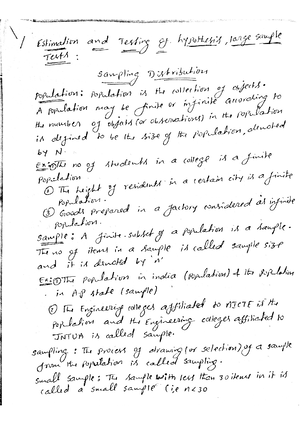 Estimation and Testing of hypothesis, large sample
Tests :
Sampling Distribution
Population : Population is the collection of objects.
A Population may be finite or infinite according to
the number of objects (or observations) in the population
is defined to be the size of the population, denoted
by N.
Ex:- ① The no of students in a college is a finite
Population
② The height of residents in a certain city is a finite
Population.
③ Goods prepared in a factory considered as infinite
Population.
Sample : A finite subset of a population is a sample.
The no of items in a sample is called sample size
and it is denoted by 'n'
Ex:- ① The population in india (Population) & the population
in AP state (sample)
② The Engineering colleges affiliated to AICTE is the
Population and the Engineering colleges affiliated to
JNTUA is called sample.
Sampling : The process of drawing (or selection) of a sample
from the population is called sampling.
Small Sample : The sample with less than 30 items in it is
called a small sample (i.e n<30